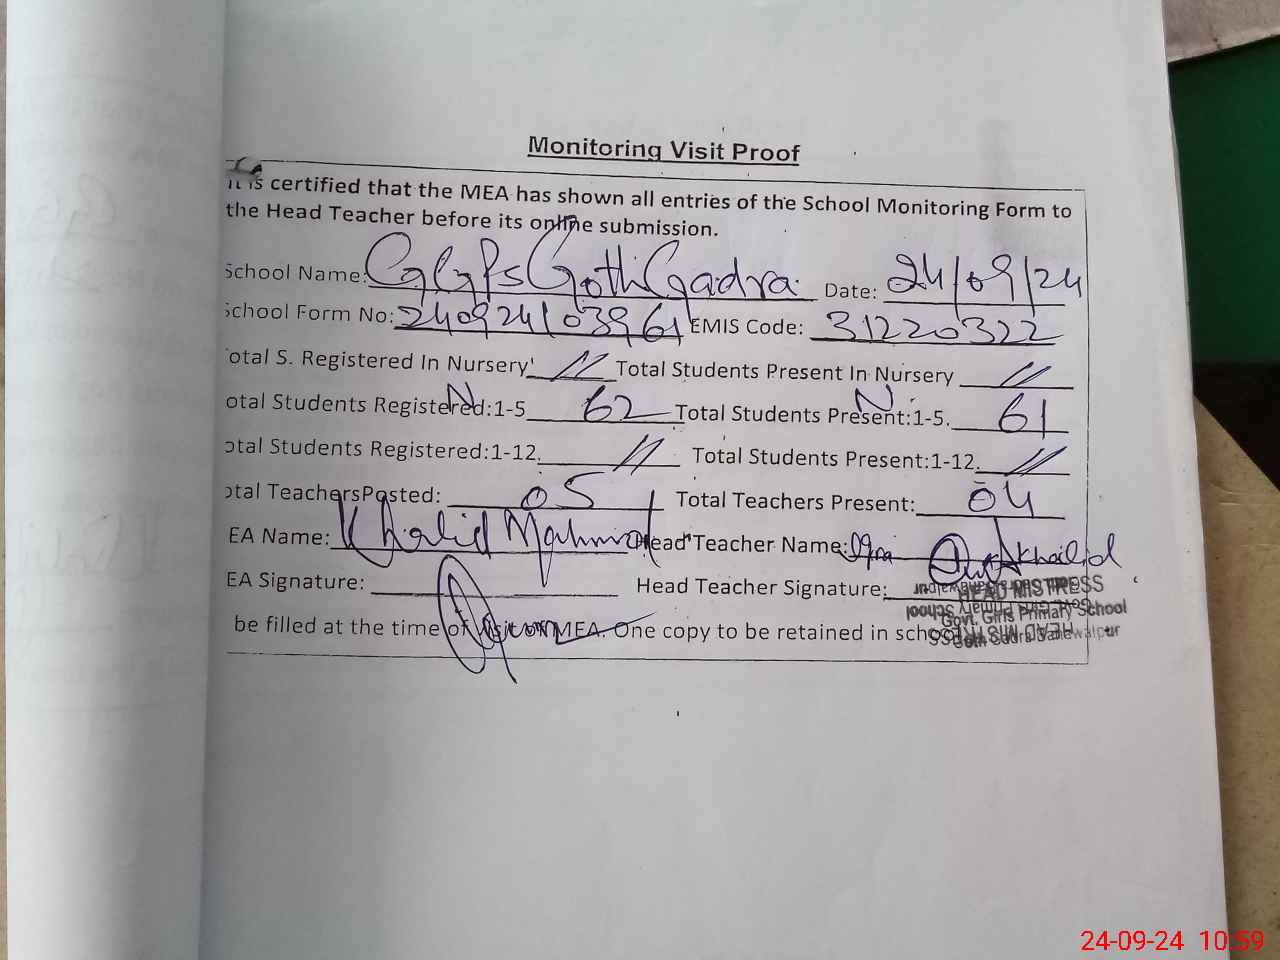 Monitoring Visit Proof
It is certified that the MEA has shown all entries of the School Monitoring Form to
the Head Teacher before its online submission.
School Name: GGPS Goth Gadra Date: 24/09/24
School Form No: 240924103961 EMIS Code: 31220322
otal S. Registered In Nursery' // Total Students Present In Nursery //
otal Students Registered:1-5 N 62 Total Students Present:1-5. N 61
otal Students Registered:1-12. // Total Students Present:1-12. //
otal TeachersPosted: 05 Total Teachers Present: 04
EA Name: Khalid Mahmood Head Teacher Name: Iqra Khalid
EA Signature: Head Teacher Signature:
HEAD MISTRESS
Govt. Girls Primary School
be filled at the time of visit by MEA. One copy to be retained in school
24-09-24 10:59